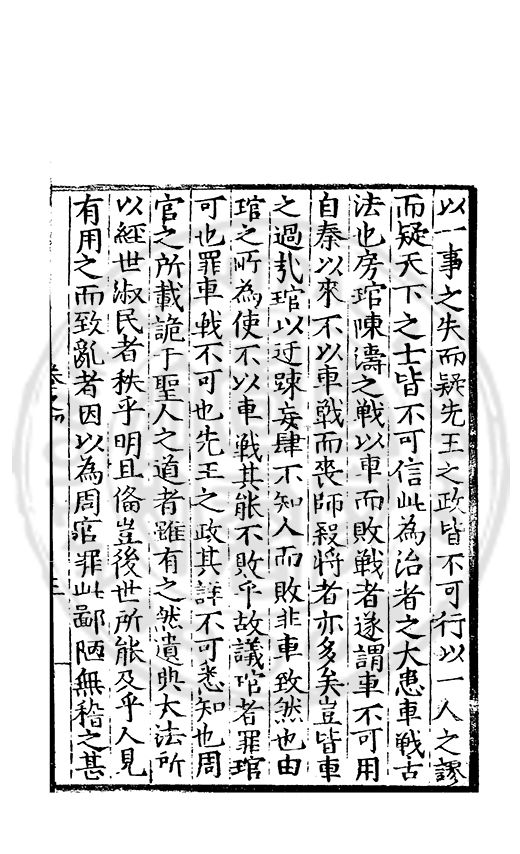 以一事之失而疑先王之政皆不可行以一人之謬
而疑天下之士皆不可信此為治者之大患車戰古
法也房琯陳濤之戰以車而敗戰者遂謂車不可用
自秦以來不以車戰而喪師殺將者亦多矣豈皆車
之過乎琯以迂踈妄肆不知人而敗非車致然也由
琯之所為使不以車戰其能不敗乎故議琯者罪琯
可也罪車戰不可也先王之政其詳不可悉知也周
官之所載詭于聖人之道者雖有之然遺典大法所
以經世淑民者秩乎明且偹豈後世所能及乎人見
有用之而致亂者因以為周官罪此鄙陋無稽之甚